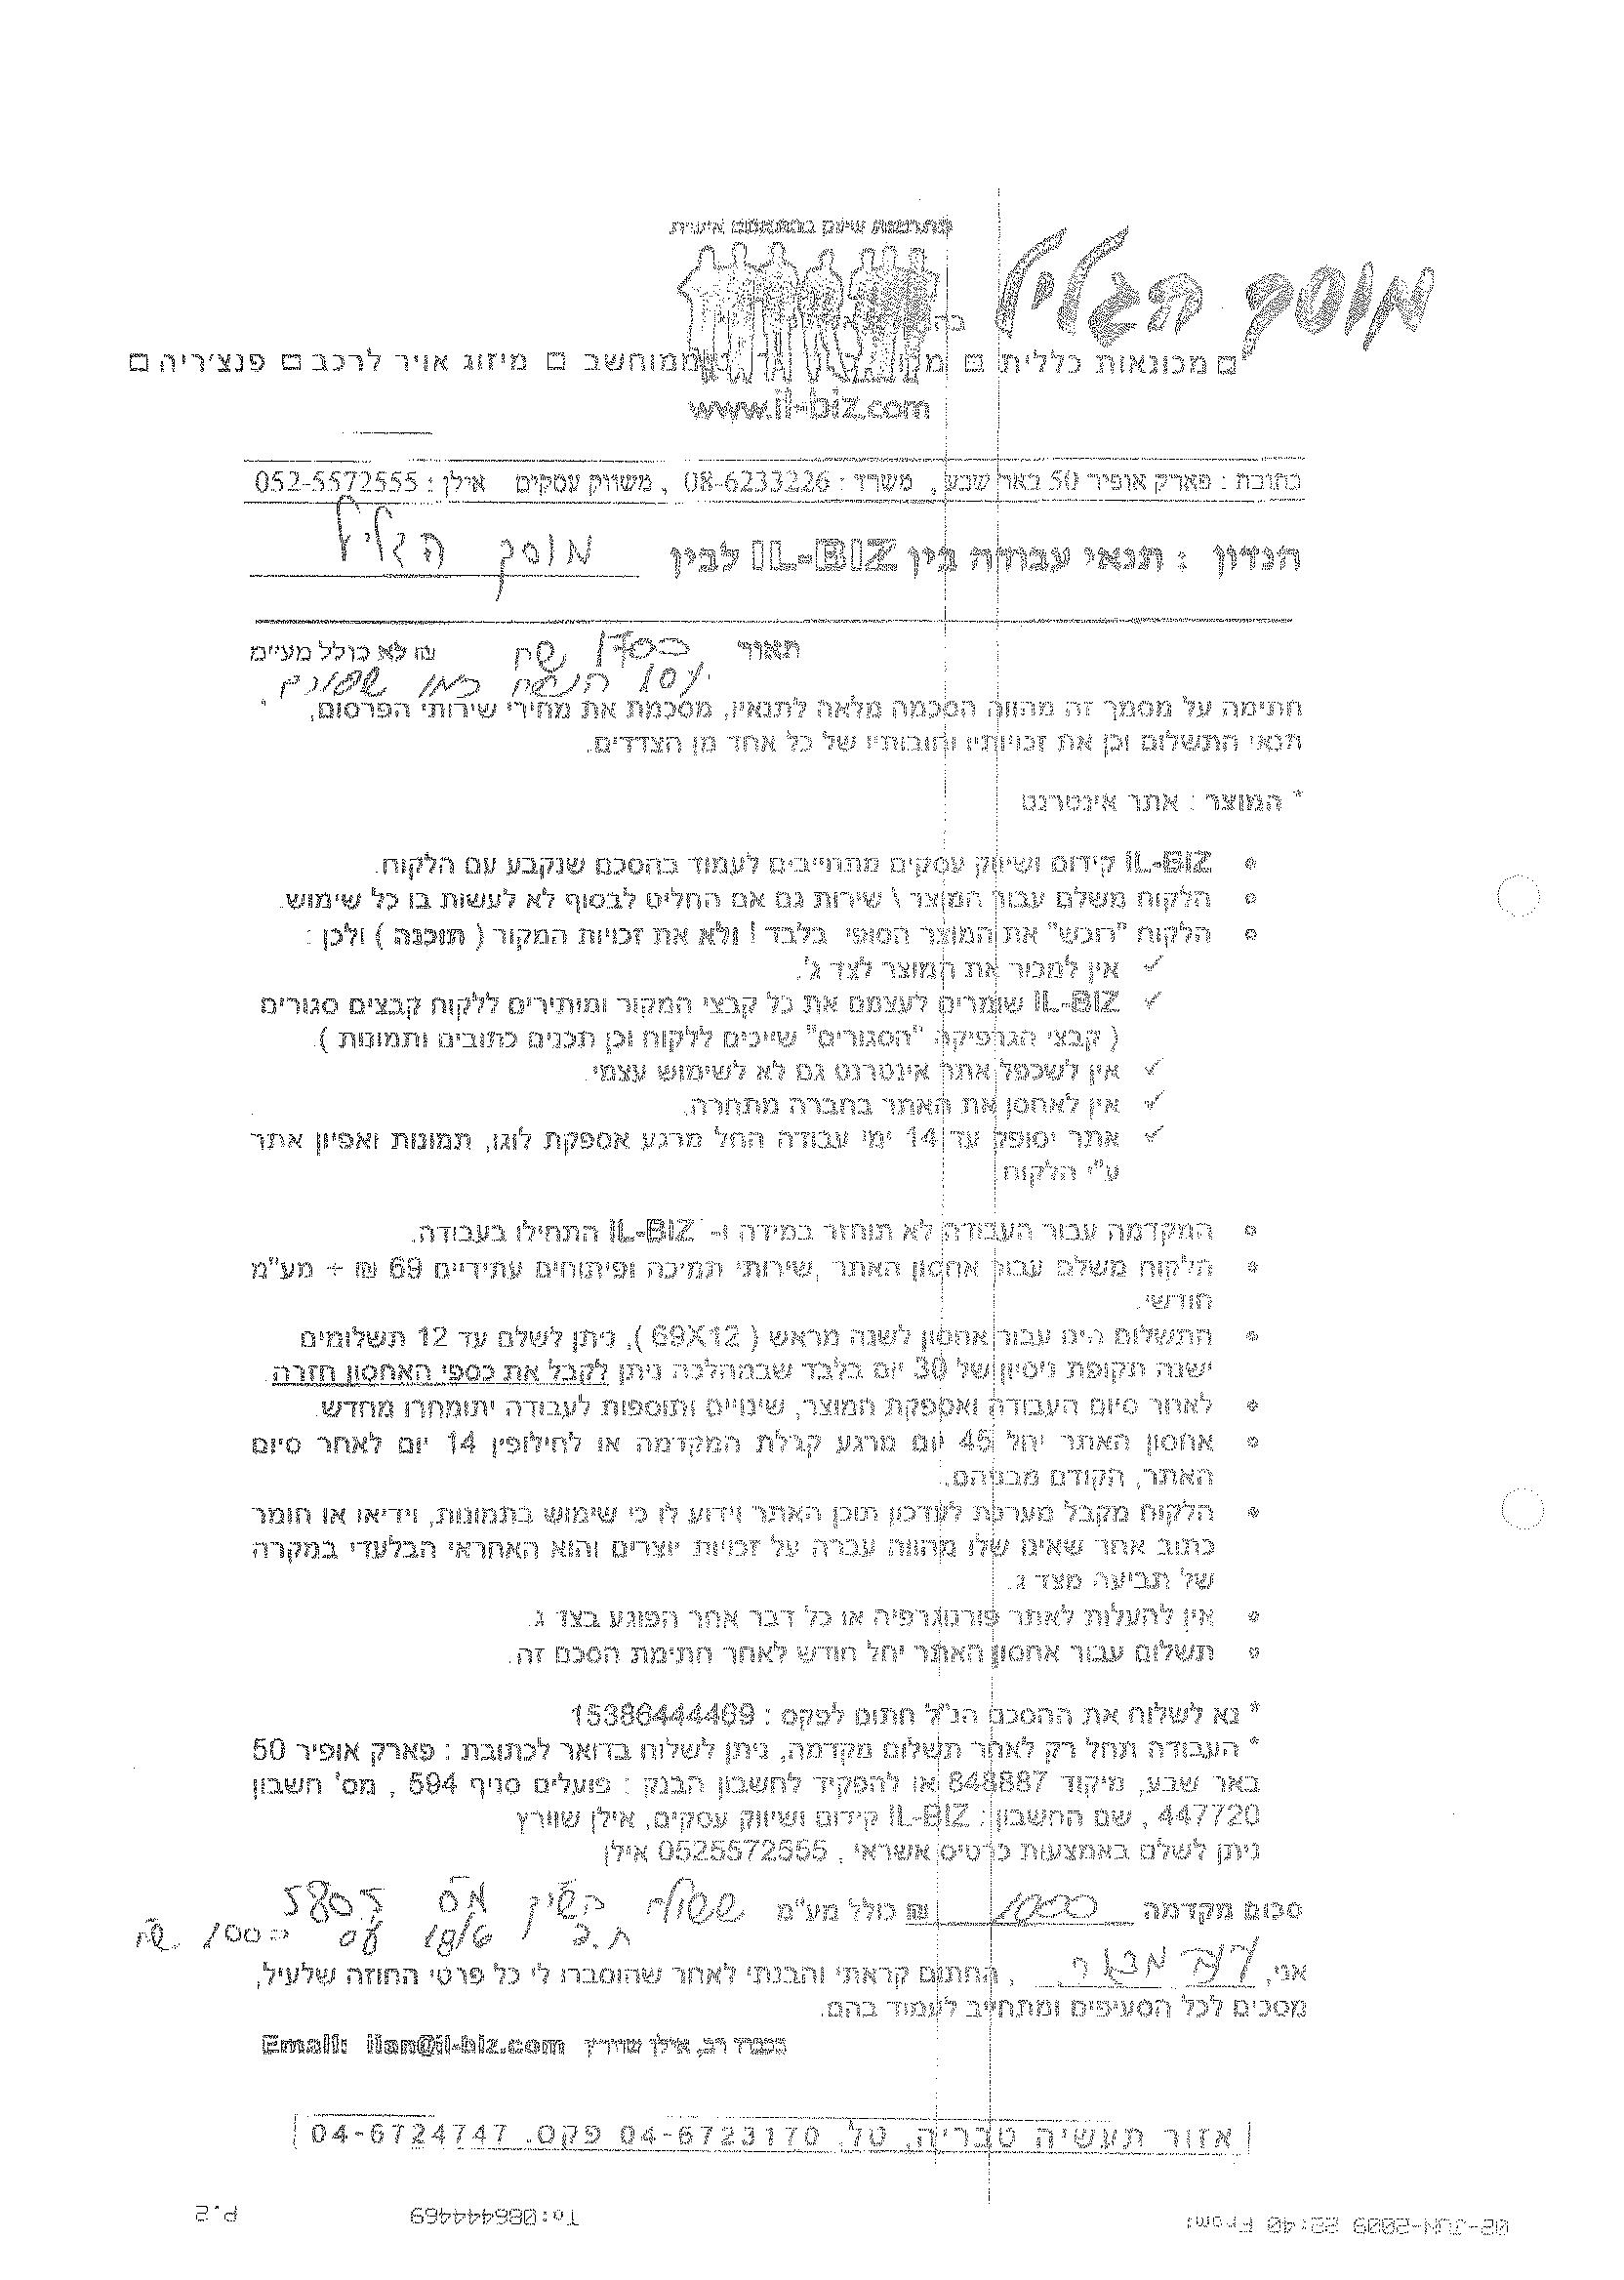 פתרונות שיווק בהתאמה אישית
מוסך הגליל
מכונאות כללית ממוחשב מיזוג אויר לרכב פנצ'ריה
www.il-biz.com
כתובת : פארק אופיר 50 באר שבע , משרד : 08-6233226 , משווק עסקים אילן : 052-5572555
הנדון : תנאי עבודה בין IL-BIZ לבין מוסך הגליל
תאור 1700 שח ₪ לא כולל מע"מ
10% הנחה
חתימה על מסמך זה מהווה הסכמה מלאה לתנאיו, מסכמת את מחירי שירותי הפרסום,
תנאי התשלום וכן את זכויותיו וחובותיו של כל אחד מן הצדדים.
* המוצר : אתר אינטרנט
• IL-BIZ קידום ושיווק עסקים מתחייבים לעמוד בהסכם שנקבע עם הלקוח.
• הלקוח משלם עבור המוצר \ שירות גם אם החליט לבסוף לא לעשות בו כל שימוש.
• הלקוח "רוכש" את המוצר הסופי בלבד ! ולא את זכויות המקור ( תוכנה ) ולכן :
✓ אין למכור את המוצר לצד ג'.
✓ IL-BIZ שומרים לעצמם את כל קבצי המקור ומותירים ללקוח קבצים סגורים
( קבצי הגרפיקה "הסגורים" שייכים ללקוח וכן תכנים כתובים ותמונות ).
✓ אין לשכפל אתר אינטרנט גם לא לשימוש עצמי.
✓ אין לאחסן את האתר בחברה מתחרה.
✓ אתר יסופק עד 14 ימי עבודה החל מרגע אספקת לוגו, תמונות ואפיון אתר
ע"י הלקוח
• המקדמה עבור העבודה לא תוחזר במידה ו- IL-BIZ התחילו בעבודה.
• הלקוח משלם עבור אחסון האתר ,שירותי תמיכה ופיתוחים עתידיים 69 ₪ + מע"מ
חודשי.
• התשלום הינו עבור אחסון לשנה מראש ( 69X12 ), ניתן לשלם עד 12 תשלומים
ישנה תקופת ניסיון של 30 יום בלבד שבמהלכה ניתן לקבל את כספי האחסון חזרה.
• לאחר סיום העבודה ואספקת המוצר, שינויים ותוספות לעבודה יתומחרו מחדש.
• אחסון האתר יחל 45 יום מרגע קבלת המקדמה או לחילופין 14 יום לאחר סיום
האתר, הקודם מבניהם.
• הלקוח מקבל מערכת לעדכון תוכן האתר וידוע לו כי שימוש בתמונות, וידיאו או חומר
כתוב אחר שאינו שלו מהווה עברה על זכויות יוצרים והוא האחראי הבלעדי במקרה
של תביעה מצד ג.
• אין להעלות לאתר פורנוגרפיה או כל דבר אחר הפוגע בצד ג.
• תשלום עבור אחסון האתר יחל חודש לאחר חתימת הסכם זה.
* נא לשלוח את ההסכם הנ"ל חתום לפקס : 15386444469
* העבודה תחל רק לאחר תשלום מקדמה, ניתן לשלוח בדואר לכתובת : פארק אופיר 50
באר שבע, מיקוד 848887 או להפקיד לחשבון הבנק : פועלים סניף 594 , מס' חשבון
447720 , שם החשבון : IL-BIZ קידום ושיווק עסקים, אילן שוורץ
ניתן לשלם באמצעות כרטיס אשראי , 0525572555 אילן
סכום מקדמה 1000 ₪ כולל מע"מ
אני, , החתום קראתי והבנתי לאחר שהוסברו לי כל פרטי החוזה שלעיל,
מסכים לכל הסעיפים ומתחייב לעמוד בהם.
בכבוד רב, אילן שוורץ Email: ilan@il-biz.com
אזור תעשיה טבריה, טל. 04-6723170 פקס. 04-6724747
02-JUN-2009 22:40 From: To:0864444469 P.2